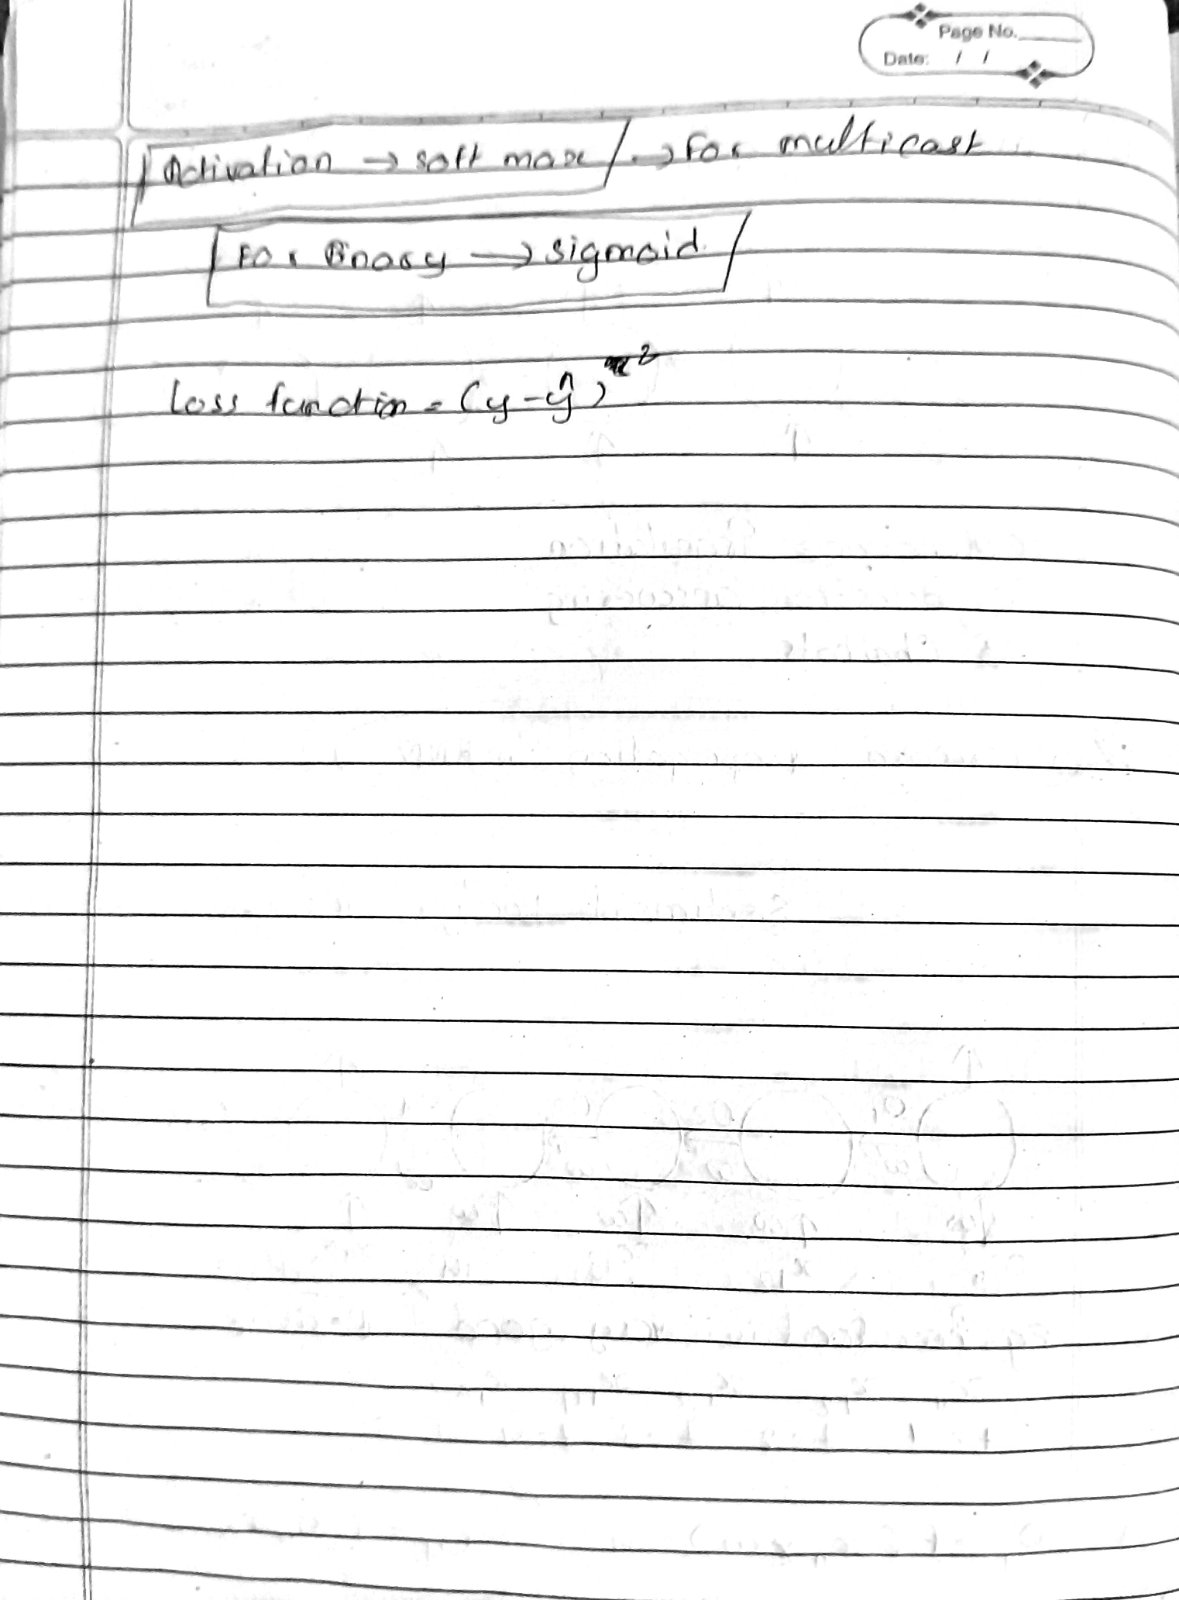 Page No.
Date: / /
Activation → soft max → For multicast
For Binary → sigmoid
Loss function = (y - ŷ)²